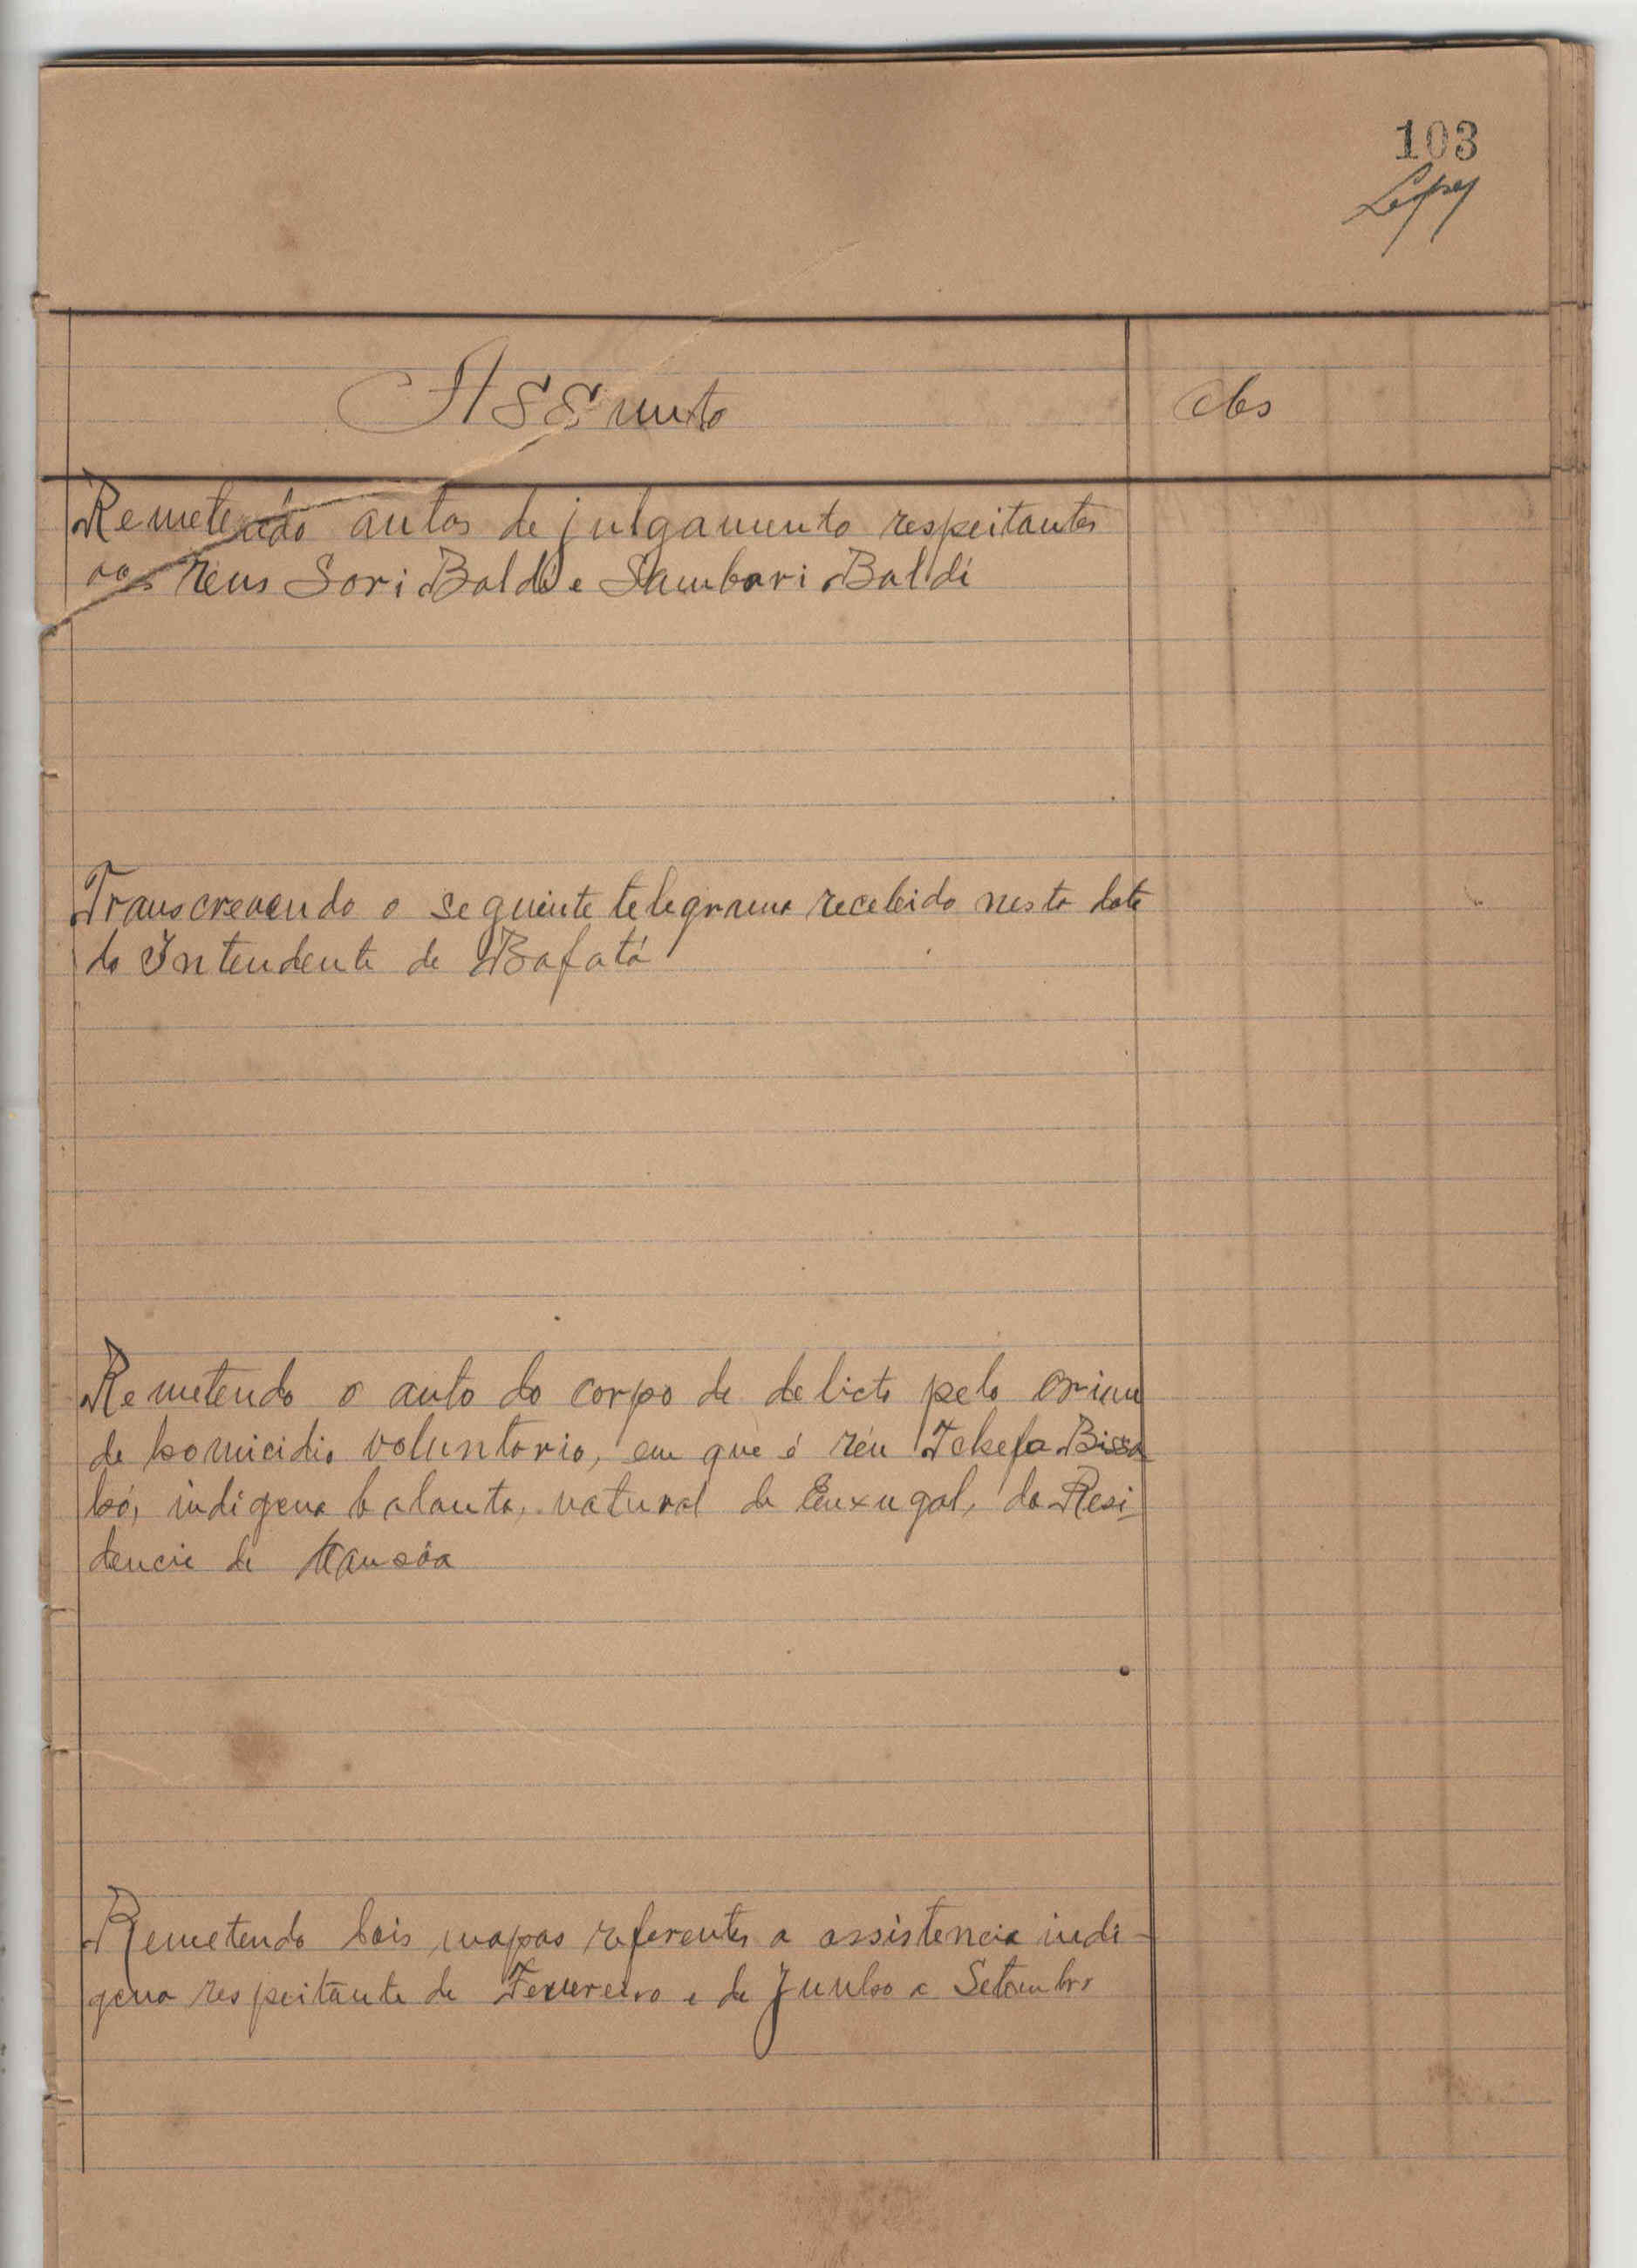 103
Assunto
Obs
Remetendo autos de julgamento respeitantes
aos reus Sori Baldé e Sambari Baldé
Transcrevendo o seguinte telegrama recebido nesta data
do Intendente de Bafatá
Remetendo o auto do corpo de delicto pelo crime
de homicidio voluntario, em que é réu Tchefa Bissa
hó, indigena balanta, natural de Enxugal, da Resi
dencia de Mansôa
Remetendo dois mapas referentes a assistencia indi-
gena respeitante de Fevereiro e de Junho a Setembro